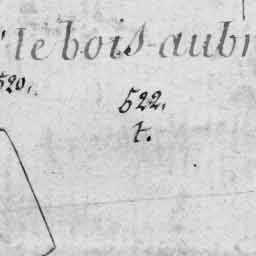 le bois-aubr
520.
522.
t.